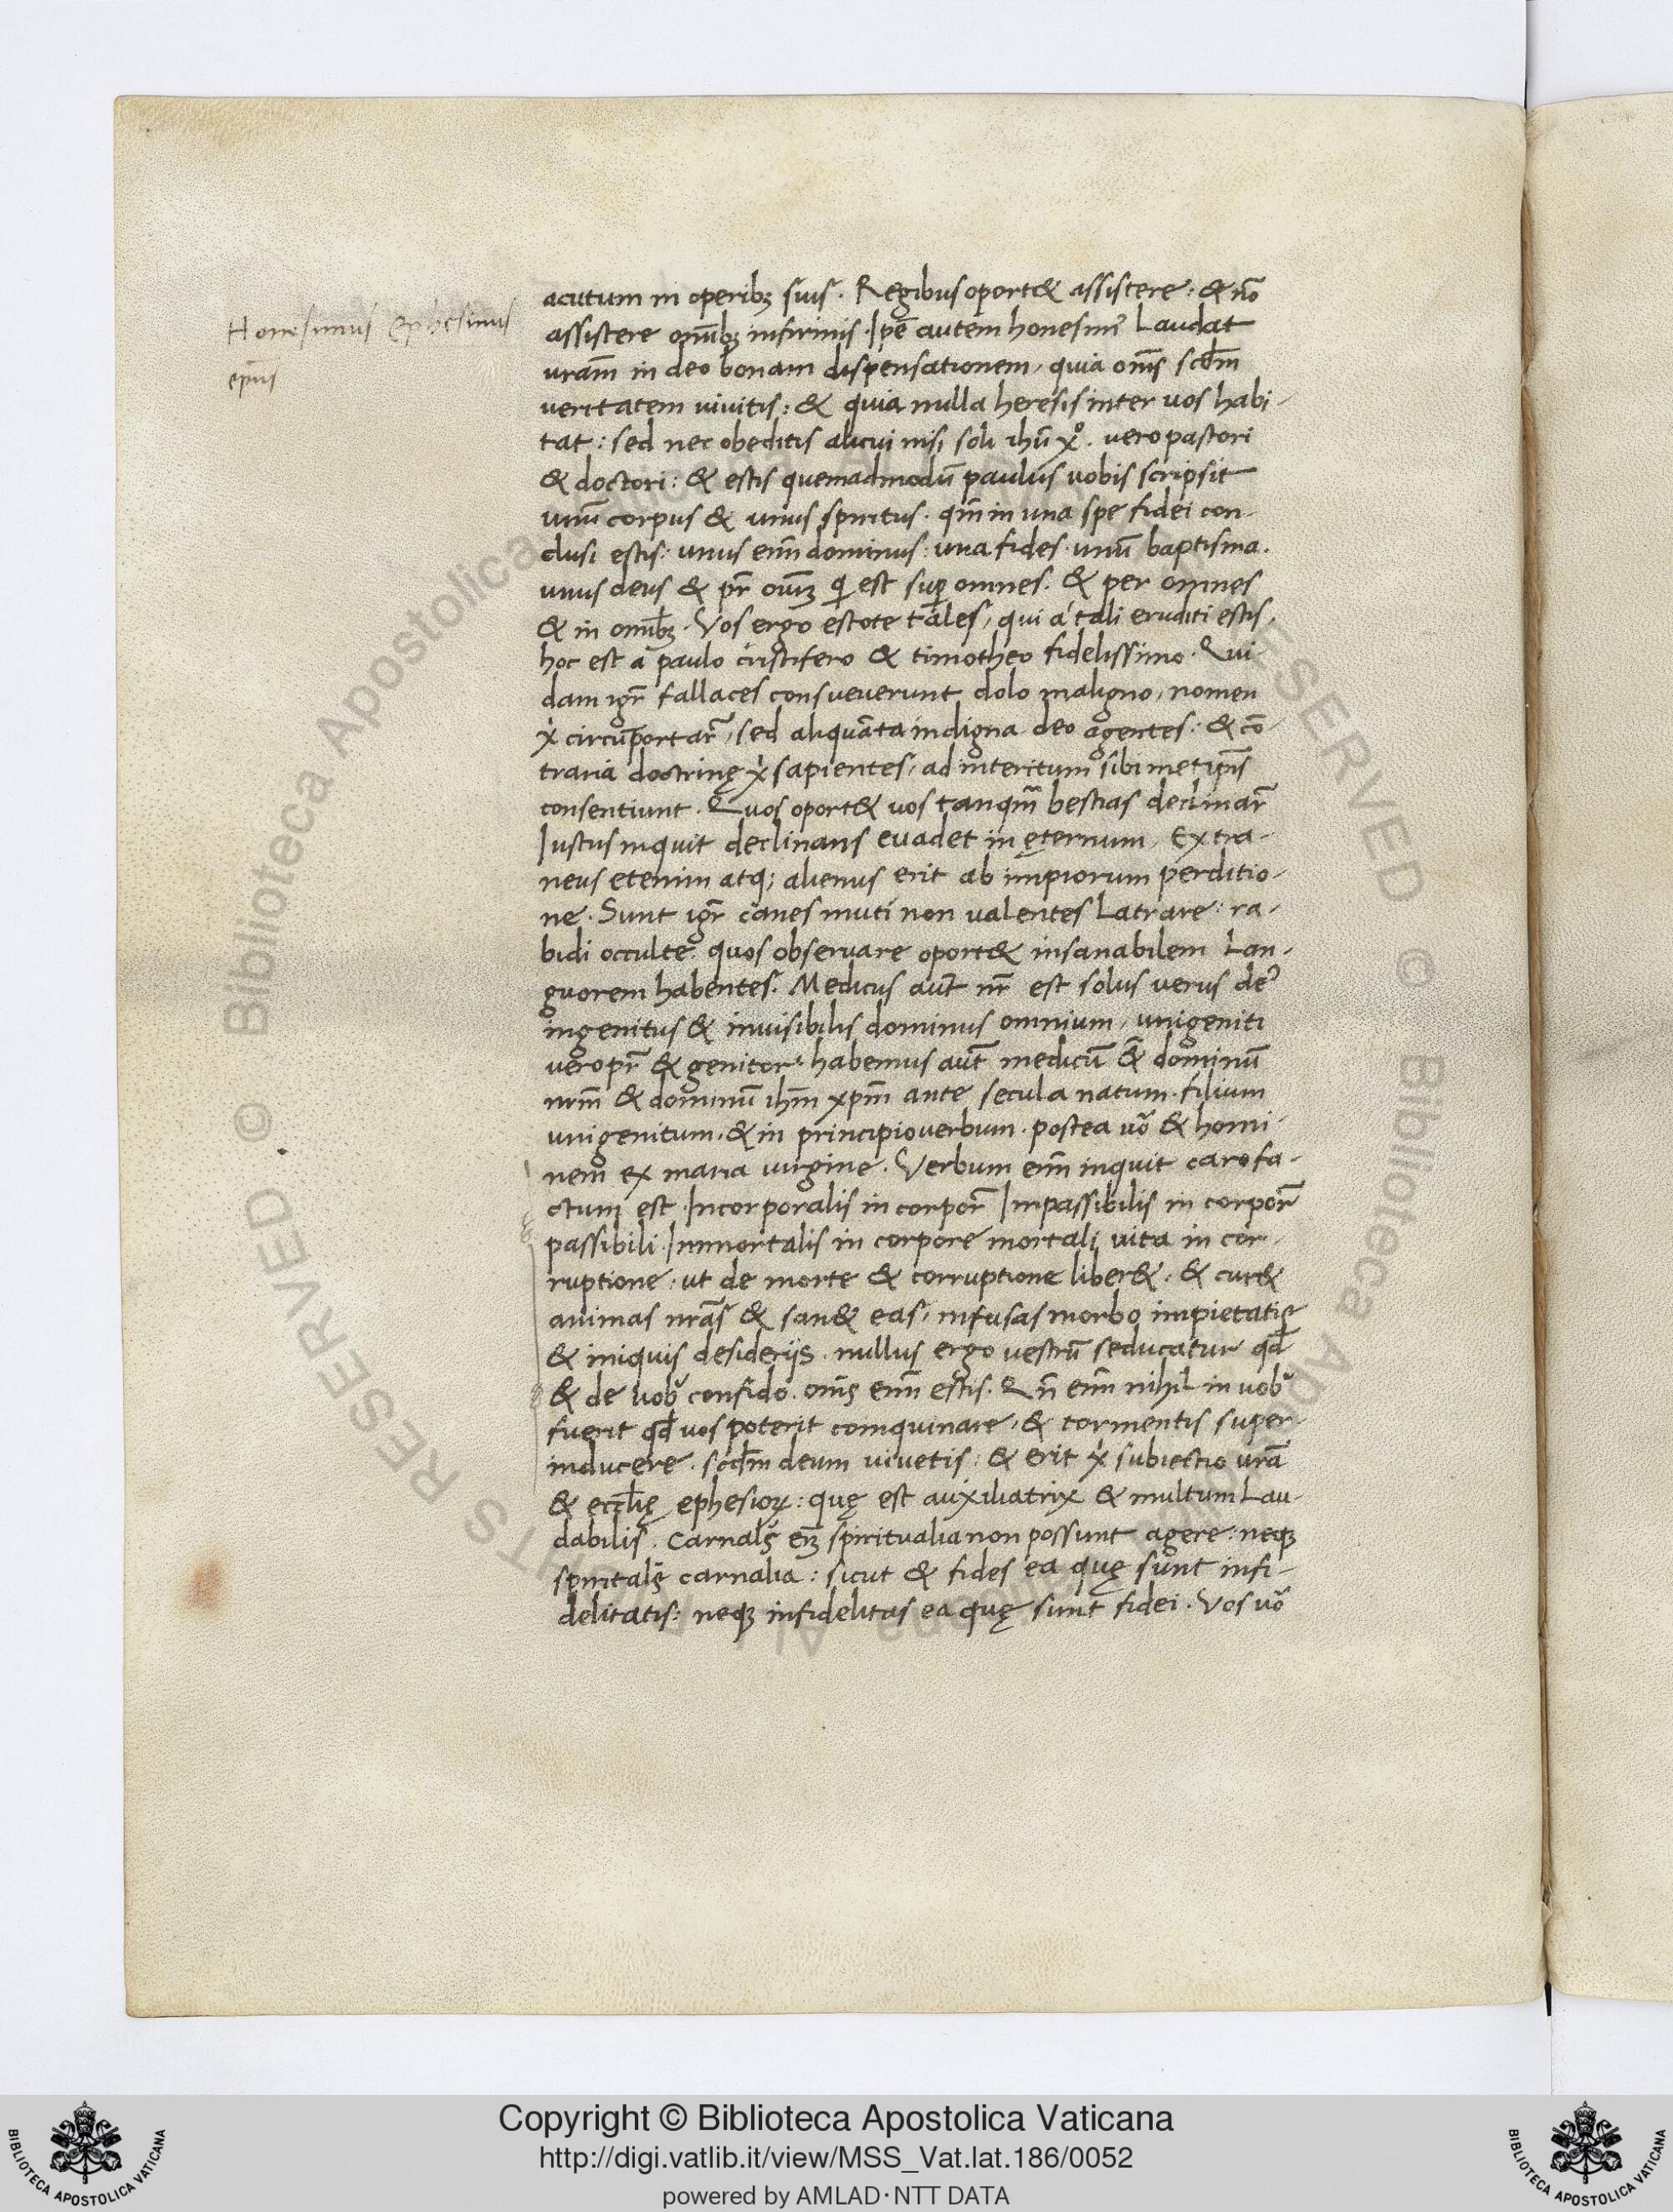 Honesimus ephesinus
ep̄us
acutum in operib; suis. Regibus oport& assistere: & nō
assistere om̄ib; infirmis. Ip̄e autem honesim᾿ Laudat
vrām in deo bonam dispensationem, quia om̄s scd̄m
veritatem vivitis: & quia nulla heresis inter uos habi-
tat: sed nec obeditis alicui nisi soli ihū xp̊. vero pastori
& doctori: & estis quemadmodū paulus uobis scripsit
unū corpus & unus spiritus. qm̄ in una spe fidei con-
clusi estis: unus enī dominus: una fides. unū baptisma.
unus deus & pr̄ oīuꝫ q̄ est suꝑ omnes. & per omnes
& in omībꝫ. Vos ergo estote tales, qui á tali eruditi estis,
hoc est a paulo cristifero & timotheo fidelissimo. Qui-
dam igr̄ fallaces consueverunt dolo maligno, nomen
xi circūportar̄, sed aliquāta indigna deo agentes: & cō-
traria doctrinę xi sapientes, ad interitum sibimetip̄is
consentiunt. Quos oport& vos tanqm̄ bestias declinar̄
Iustus inquit declinans evadet in ęternum, Extra-
neus etenim atq; alienus erit ab impiorum perditio-
ne. Sunt igr̄ canes muti non valentes Latrare: ra-
bidi occulte. quos observare oport& insanabilem Lan-
guorem habentes. Medicus aūt nr̄ est solus verus de᾿
ingenitus & invisibilis dominus omnium, unigeniti
vero pr̄ & genitor. habemus aūt medicū & dominū
nrm̄ & dominū ihm̄ xpm̄ ante secula natum. filium
unigenitum. & in principio verbum. postea uō & homi-
nem ex maria virgine. Verbum enī inquit caro fa-
ctum est. Incorporalis in corpor̄ Impassibilis in corpor̄
passibili. Immortalis in corpore mortali vita in cor-
ruptione. ut de morte & corruptione liber&. & cur&
animas nrās & san& eas, infusas morbo impietatis
& iniquis desiderijs. nullus ergo vestrū seducatur qd̄
& de uob᾿ confido. om̄s enī estis. Qn̄ enī nihil in vob᾿
fuerit qd̄ vos poterit coinquinare, & tormentis super-
inducere. scd̄m deum vivetis: & erit xi subiectio vrā
& eccl̄ię ephesioꝝ: quę est auxiliatrix & multum Lau-
dabilis. Carnalꝭ eīꝫ spiritualia non possunt agere: neqꝫ
spiritalꝭ carnalia: sicut & fides ea quę sunt infi-
delitatis: neqꝫ infidelitas ea quę sunt fidei. Vos uō
Copyright © Biblioteca Apostolica Vaticana
http://digi.vatlib.it/view/MSS_Vat.lat.186/0052
powered by AMLAD·NTT DATA